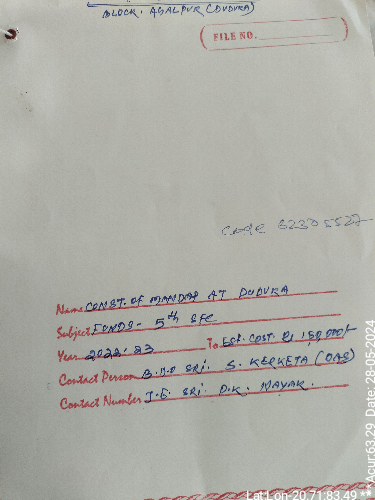 BLOCK. AGALPUR (DUDUKA)
FILE NO.
Code 62305527
Name CONST. of MANDAP AT DUDUKA
Subject FUNDS - 5th SFC
Year 2022-23 To Est. COST. Rs 150,000/-
Contact Person B.D.O SRI. S. KERKETA (OAS)
Contact Number J.E. SRI. D.K. NAYAK.
Lat Lon-20.71 83.49 *** Acur 63.29 Date: 28-05-2024